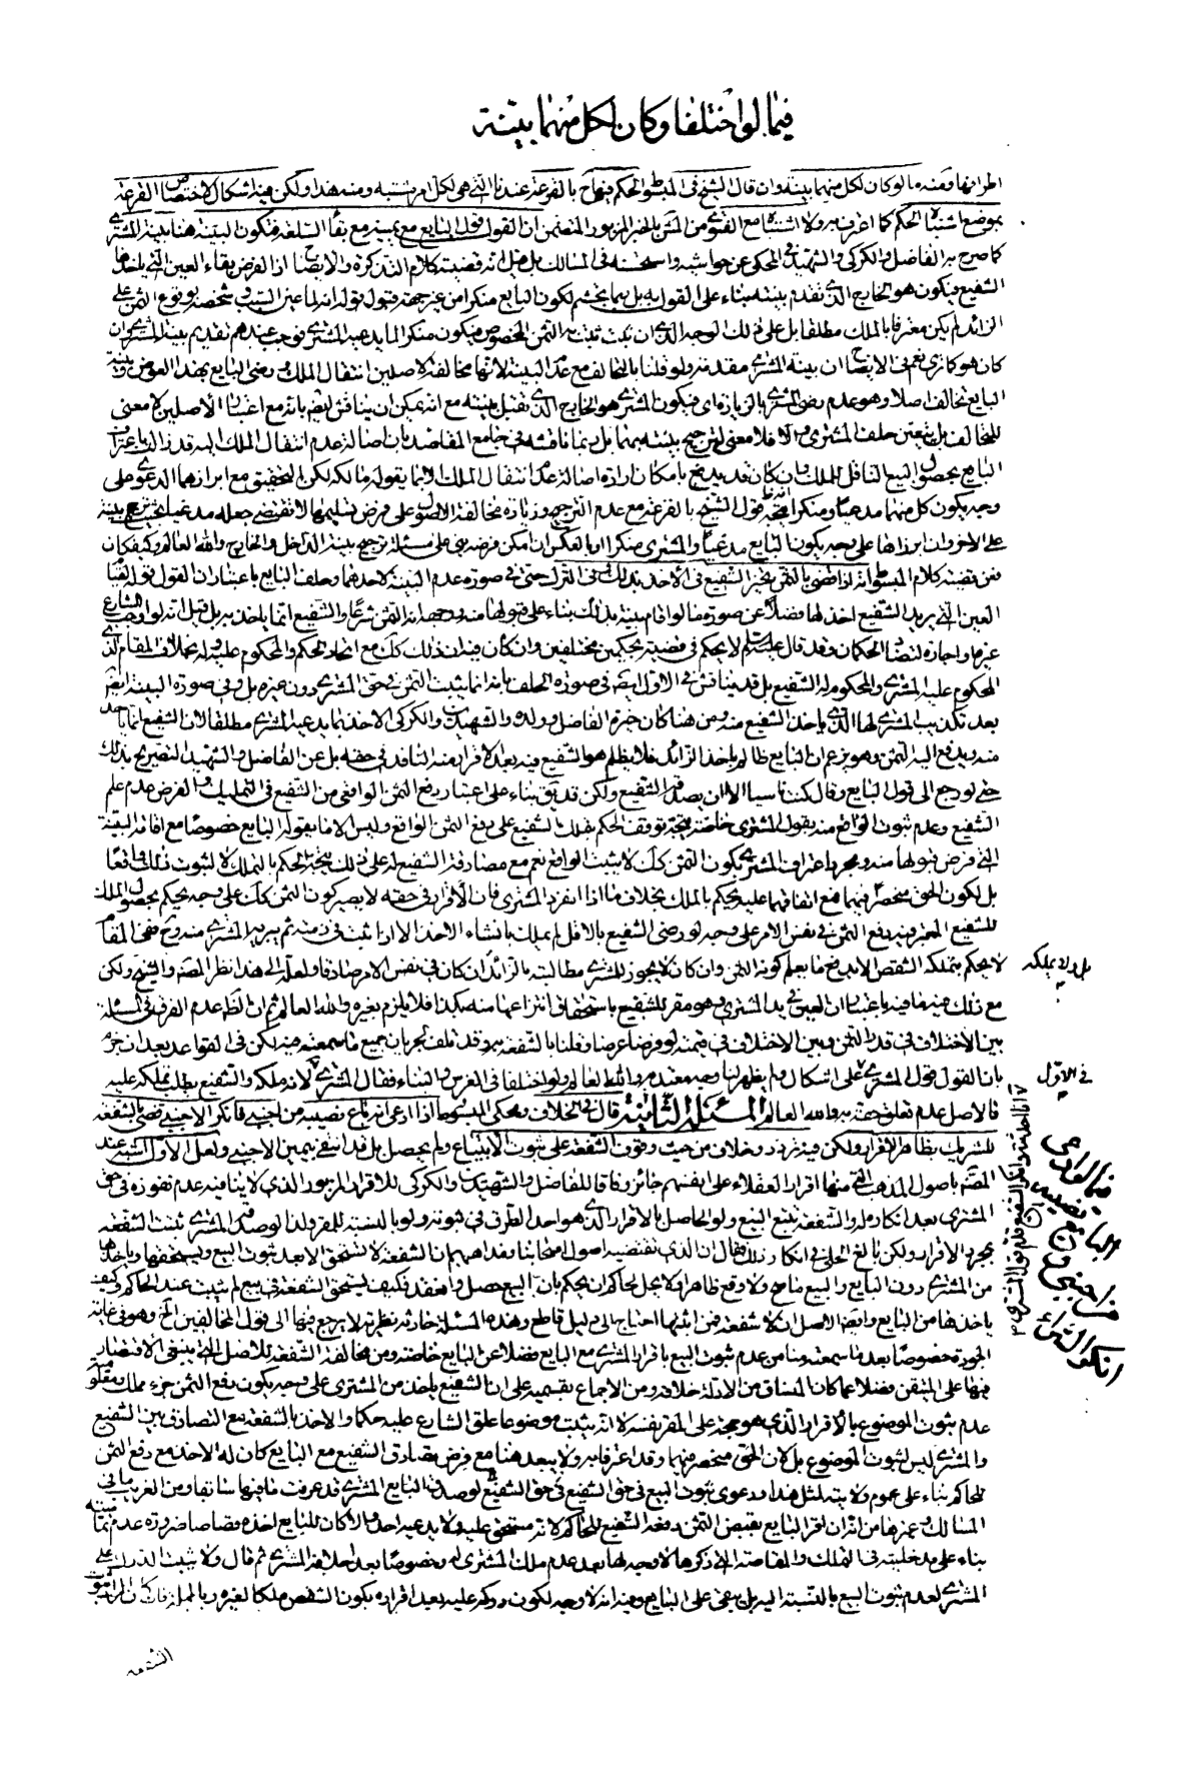 فيما لو اختلفا وكان لكل منهما بينة
اطرافها ومنه ما لو كان لكل منهما بينة وان قال الشيخ في المبسوط الحكم فيها ح بالقرعة عندنا التي هي لكل امر مشتبه ومنه هذا ولكن فيه اشكال لاختصاص القرعة
بموضع اشتباه الحكم كما اعترف به ولا اشتباه مع الفتوى من المش بالخبر المزبور المتضمن ان القول قول البايع مع يمينه مع بقاء السلعة فتكون البينة هنا بينة المشترى
كما صرح به الفاضل والكركي والشهيد في المحكي عن حواشيه واستحسنه في المسالك بل قيل انه قضية كلام التذكرة والايضاح اذ الفرض بقاء العين التي ياخذها
الشفيع فيكون هو الخارج الذى تقدم بينته بناء على القول به بل ربما
الزائد لم يكن معترفا بالملك مطلقا بل على ذلك الوجه الذى ان ثبت ثبت به الثمن المخصوص فيكون منكرا لما يدعيه المشترى فوجب عندهم تقديم بينة المشترى وان
كان هو كما ترى نعم في الايضاح ان بينة المشترى مقدمة ولو قلنا بالتحالف مع عدم البينة لانها مخالفة لاصلين انتقال الملك و رضى البايع بهذا العوض وبينة
البايع تخالف اصلا وهو عدم رضى المشترى بالزيادة اى فيكون المشترى هو الخارج الذى تقبل بينته مع انه يمكن ان يناقش ايضا بانه مع اعتبار الاصلين لا معنى
للتحالف بل يتعين حلف المشترى والا فلا معنى لترجيح بينته بهما بل ربما ناقشه في جامع المقاصد بان اصالة عدم انتقال الملك اليه قد زالت باعتراف
البايع بحصول البيع الناقل للملك وان كان قد يدفع بامكان ارادة اصالة عدم انتقال الملك الا بما يقوله مالكه لكن التحقيق مع ابرازهما الدعوى على
وجه يكون كل منهما مدعيا ومنكرا اتجه قول الشيخ بالقرعة مع عدم الترجيح وزيادة مخالفة الاصول على فرض تسليمها لا تقتضي جعله مدعيا بحيث ترجح بينته
على الاخر وان ابرزاها على وجه يكون البايع مدعيا والمشترى منكرا او بالعكس ان امكن فرضه بنى على مسئلة ترجيح بينة الداخل والخارج والله العالم وكيف كان
فمن قضية كلام المبسوط انه اذا قضى بالثمن تخير الشفيع في الاخذ بذلك وفي الترك حتى في صورة عدم البينة لاحدهما وحلف البايع باعتبار ان القول قوله لبقاء
العين التي يريد الشفيع اخذ لها فضلا عن صورة ما لو اقام بينة بذلك بناء على قبولها منه ووجهه انه الثمن شرعا والشفيع انما ياخذ به بل قيل انه لو اوجب الشارع
غيره او اجازه لتضاد الحكمان وقد قال عليه السلم لا يحكم في قضية بحكمين مختلفين وان كان فيه ان ذلك كذلك مع اتحاد الحكم والمحكوم عليه وله بخلاف المقام الذى
المحكوم عليه المشترى والمحكوم له الشفيع بل قد يناقش في الاول ايضا في صورة الحلف بانه انما يثبت الثمن في حق المشترى دون غيره بل وفي صورة البينة ايضا
بعد تكذيب المشترى لها الذى ياخذ الشفيع منه ومن هنا كان خيرة الفاضل وولده والشهيدين والكركي الاخذ بما يدعيه المشترى مطلقا لان الشفيع انما ياخذ
منه ويدفع اليه الثمن وهو يزعم ان البايع ظالم باخذ الزائد فلا يظلم هو الشفيع فيه بعد الاقرار منه النافذ في حقه بل عن الفاضل والشهيد التصريح بذلك
حتى لو رجع الى قول البايع وقال كنت ناسيا الا ان يصدقه الشفيع ولكن قد يق بناء على اعتبار دفع الثمن الواقعي من الشفيع في التمليك والفرض عدم علم
الشفيع وعدم ثبوت الواقع منه بقول المشترى خاصة يتجه توقف الحكم بملك الشفيع على دفع الثمن الواقع وليس الا ما يقوله البايع خصوصا مع اقامة البينة
التي فرض قبولها منه ومجرد اعتراف المشترى بكون الثمن كذلك لا يثبت الواقع نعم مع مصادقة الشفيع له على ذلك يتجه الحكم بالتملك لا لثبوت ذلك واقعا
بل لكون الحق منحصرا فيهما فمع اتفاقهما عليه يحكم بالملك بخلاف ما اذا انفرد المشترى فان الاقرار في حقه لا يصير كون الثمن كذلك على وجه يحكم بحصول الملك
للشفيع المعتبر فيه دفع الثمن في نفس الامر على وجه لو رضى الشفيع بالاقل لم يملك بانشاء الاخذ الا اذا ثبت في ذمته ثم يبريه المشترى منه وح ففي المقام
لا يحكم بتملكه الشقص الا بدفع ما يعلم كونه الثمن وان كان لا يجوز للمشترى مطالبته بالزائد ان كان في نفس الامر صادقا ولعله الى هذا نظر المصنف والشيخ ولكن
بل ولا يملكه
مع ذلك فيه ما فيه باعتبار ان العين في يد المشترى وهو مقر للشفيع باستحقاق انتزاعها منه بكذا فلا يلزم بغيره والله العالم ثم ان الظاهر عدم الفرق في المسئلة
بين الاختلاف في قدر الثمن وبين الاختلاف في قيمته لو فرض عرضا وقلنا بالشفعة به وقد تلف لجريان جميع ما سمعته فيه لكن في القواعد بعد ان جزم
في الاول
بان القول قول المشترى على اشكال ولم يظهر لنا وجه معتد به والله العالم ولو اختلفا في الغرس والبناء فقال المشترى لانه ملكه والشفيع يطلب تملكه عليه
فالاصل عدم تعلق حقه به والله العالم المسئلة الثانية قال في الخلاف ومحكي المبسوط اذا ادعى انه باع نصيبه من اجنبي فانكر الاجنبي قضى بالشفعة
للشريك بظاهر الاقرار ولكن فيه تردد وخلاف من حيث وقوف الشفعة على ثبوت الابتياع ولم يحصل بل قد انتفى بيمين الاجنبي ولعل الاول اشبه عند
فيما لو ادعى
البايع بيع نصيبه
من اجنبي فانكر
الشراء
المصنف باصول المذهب التي منها اقرار العقلاء على انفسهم جائز وفاقا للفاضل والشهيدين والكركي للاقرار المزبور الذى لا ينافيه عدم نفوذه في حق
المشترى بعد انكاره له والشفعة تتبع البيع ولو الحاصل بالاقرار الذى هو احد الطرق في ثبوته ولو بالنسبة للمقر ولذا لو صدقه المشترى ثبتت الشفعة
بمجرد الاقرار ولكن بالغ الحلى في انكار ذلك فقال ان الذى تقتضيه اصول اصحابنا ومذاهبهم ان الشفعة لا تستحق الا بعد ثبوت البيع ويستحقها وياخذها
من المشترى دون البايع والبيع ما صح ولا وقع ظاهرا ولا يحل لحاكم ان يحكم بان البيع حصل وانعقد فكيف يستحق الشفعة في بيع لم يثبت عند الحاكم وكيف
ياخذها من البايع وايضا الاصل ان لا شفعة فمن اثبتها احتاج الى دليل قاطع وهذه المسئلة حادثة نظرية لا يرجع فيها الى قول المخالفين الخ وهو في غاية
الجودة خصوصا بعد ما سمعته منا من عدم ثبوت البيع باقرار المشترى مع البايع فضلا عن البايع خاصة ومن مخالفة الشفعة للاصل التي ينبغي الاقتصار
فيها على المتيقن فضلا عما كان المنساق من الادلة خلافه ومن الاجماع بقسميه على ان الشفيع ياخذ من المشترى على وجه يكون دفع الثمن جزء مملك
عدم ثبوت الموضوع بالاقرار الذى هو حجة على المقر نفسه لا انه يثبت موضوعا علق الشارع عليه حكما والاخذ بالشفعة مع التصادق بين الشفيع
والمشترى ليس لثبوت الموضوع بل لان الحق منحصر فيهما وقد اعترفا به ولا يبعد هنا مع فرض تصادق الشفيع مع البايع كان له الاخذ مع دفع الثمن
للحاكم بناء على عموم ولايته لمثل هذا ودعوى ثبوت البيع في حق الشفيع لو صدق البايع المشترى قد عرفت ما فيها سابقا ومن الغريب ما في
المسالك وغيرها من انه ان اقر البايع بقبض الثمن دفعه الشفيع للحاكم لانه مستحق عليه ولا يدعيه احد والا كان للبايع اخذه قصاصا ضرورة عدم تمامية
بناء على مدخليته في التملك والمقاصة التي ذكرها لا وجه لها بعد عدم ملك المشترى له خصوصا بعد احلافه المشترى ثم قال ولا يثبت الدرك على
المشترى لعدم ثبوت البيع بالنسبة اليه بل يبقى على البايع وفيه انه لا وجه لكون دركه عليه بعد اقراره بكون الشقص ملكا لغيره وبالجملة
الشفعة